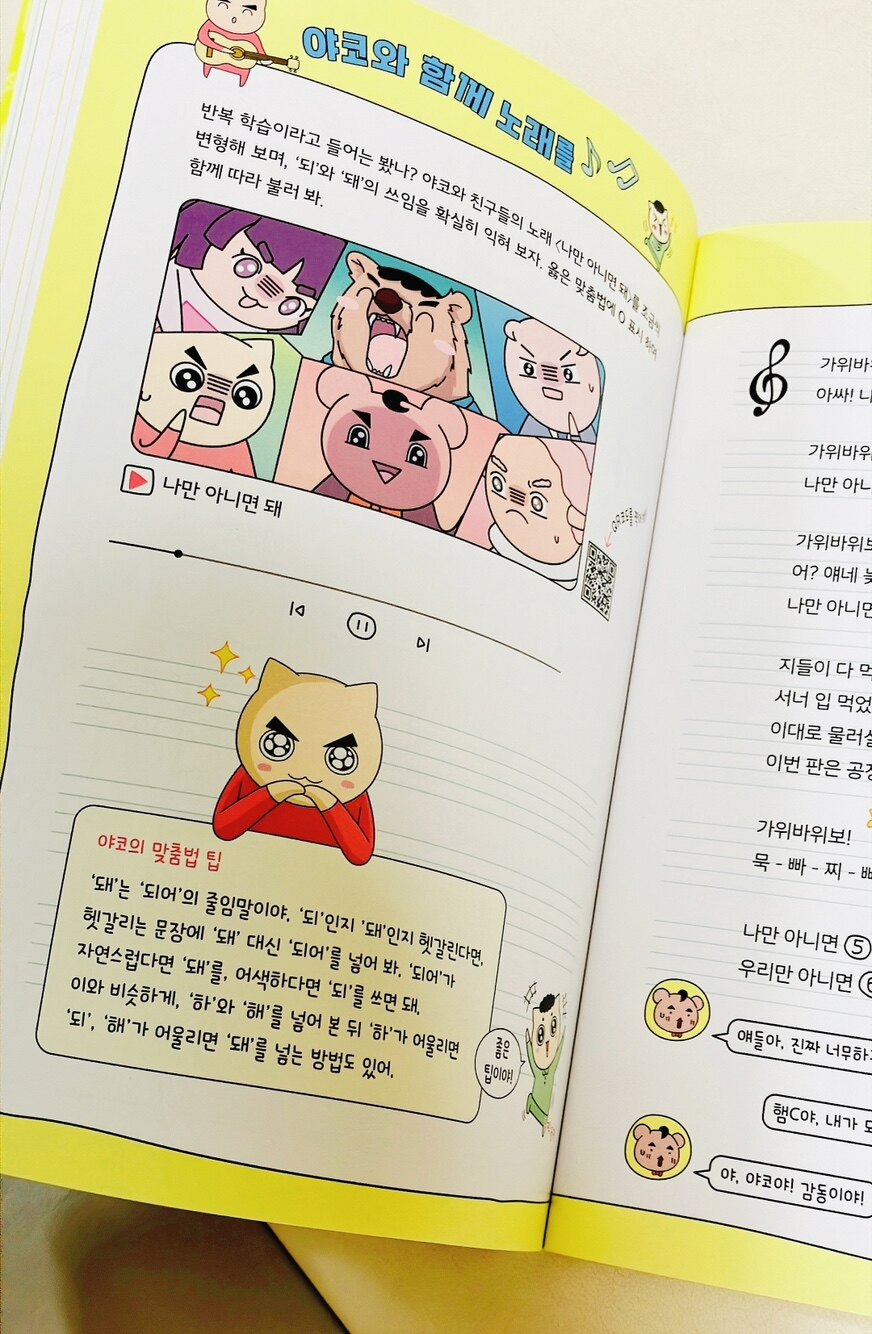 야코와 함께 노래를
반복 학습이라고 들어는 봤나? 야코와 친구들의 노래 <나만 아니면 돼>를 조금씩
변형해 보며, ‘되’와 ‘돼’의 쓰임을 확실히 익혀 보자. 옳은 맞춤법에 O 표시 하며
함께 따라 불러 봐.
나만 아니면 돼
야코의 맞춤법 팁
‘돼’는 ‘되어’의 줄임말이야. ‘되’인지 ‘돼’인지 헷갈린다면,
헷갈리는 문장에 ‘돼’ 대신 ‘되어’를 넣어 봐. ‘되어’가
자연스럽다면 ‘돼’를, 어색하다면 ‘되’를 쓰면 돼.
이와 비슷하게, ‘하’와 ‘해’를 넣어 본 뒤 ‘하’가 어울리면
‘되’, ‘해’가 어울리면 ‘돼’를 넣는 방법도 있어.
좋은
팁이야!
가위바위
아싸!
가위바위
나만 아니
가위바위보
어? 얘네
나만 아니면
지들이 다
서너 입 먹었
이대로 물러설
이번 판은 공정
가위바위보!
묵 - 빠 - 찌 -
나만 아니면 5
우리만 아니면 6
얘들아, 진짜 너무하
햄C야, 내가
야, 야코야! 감동이야!